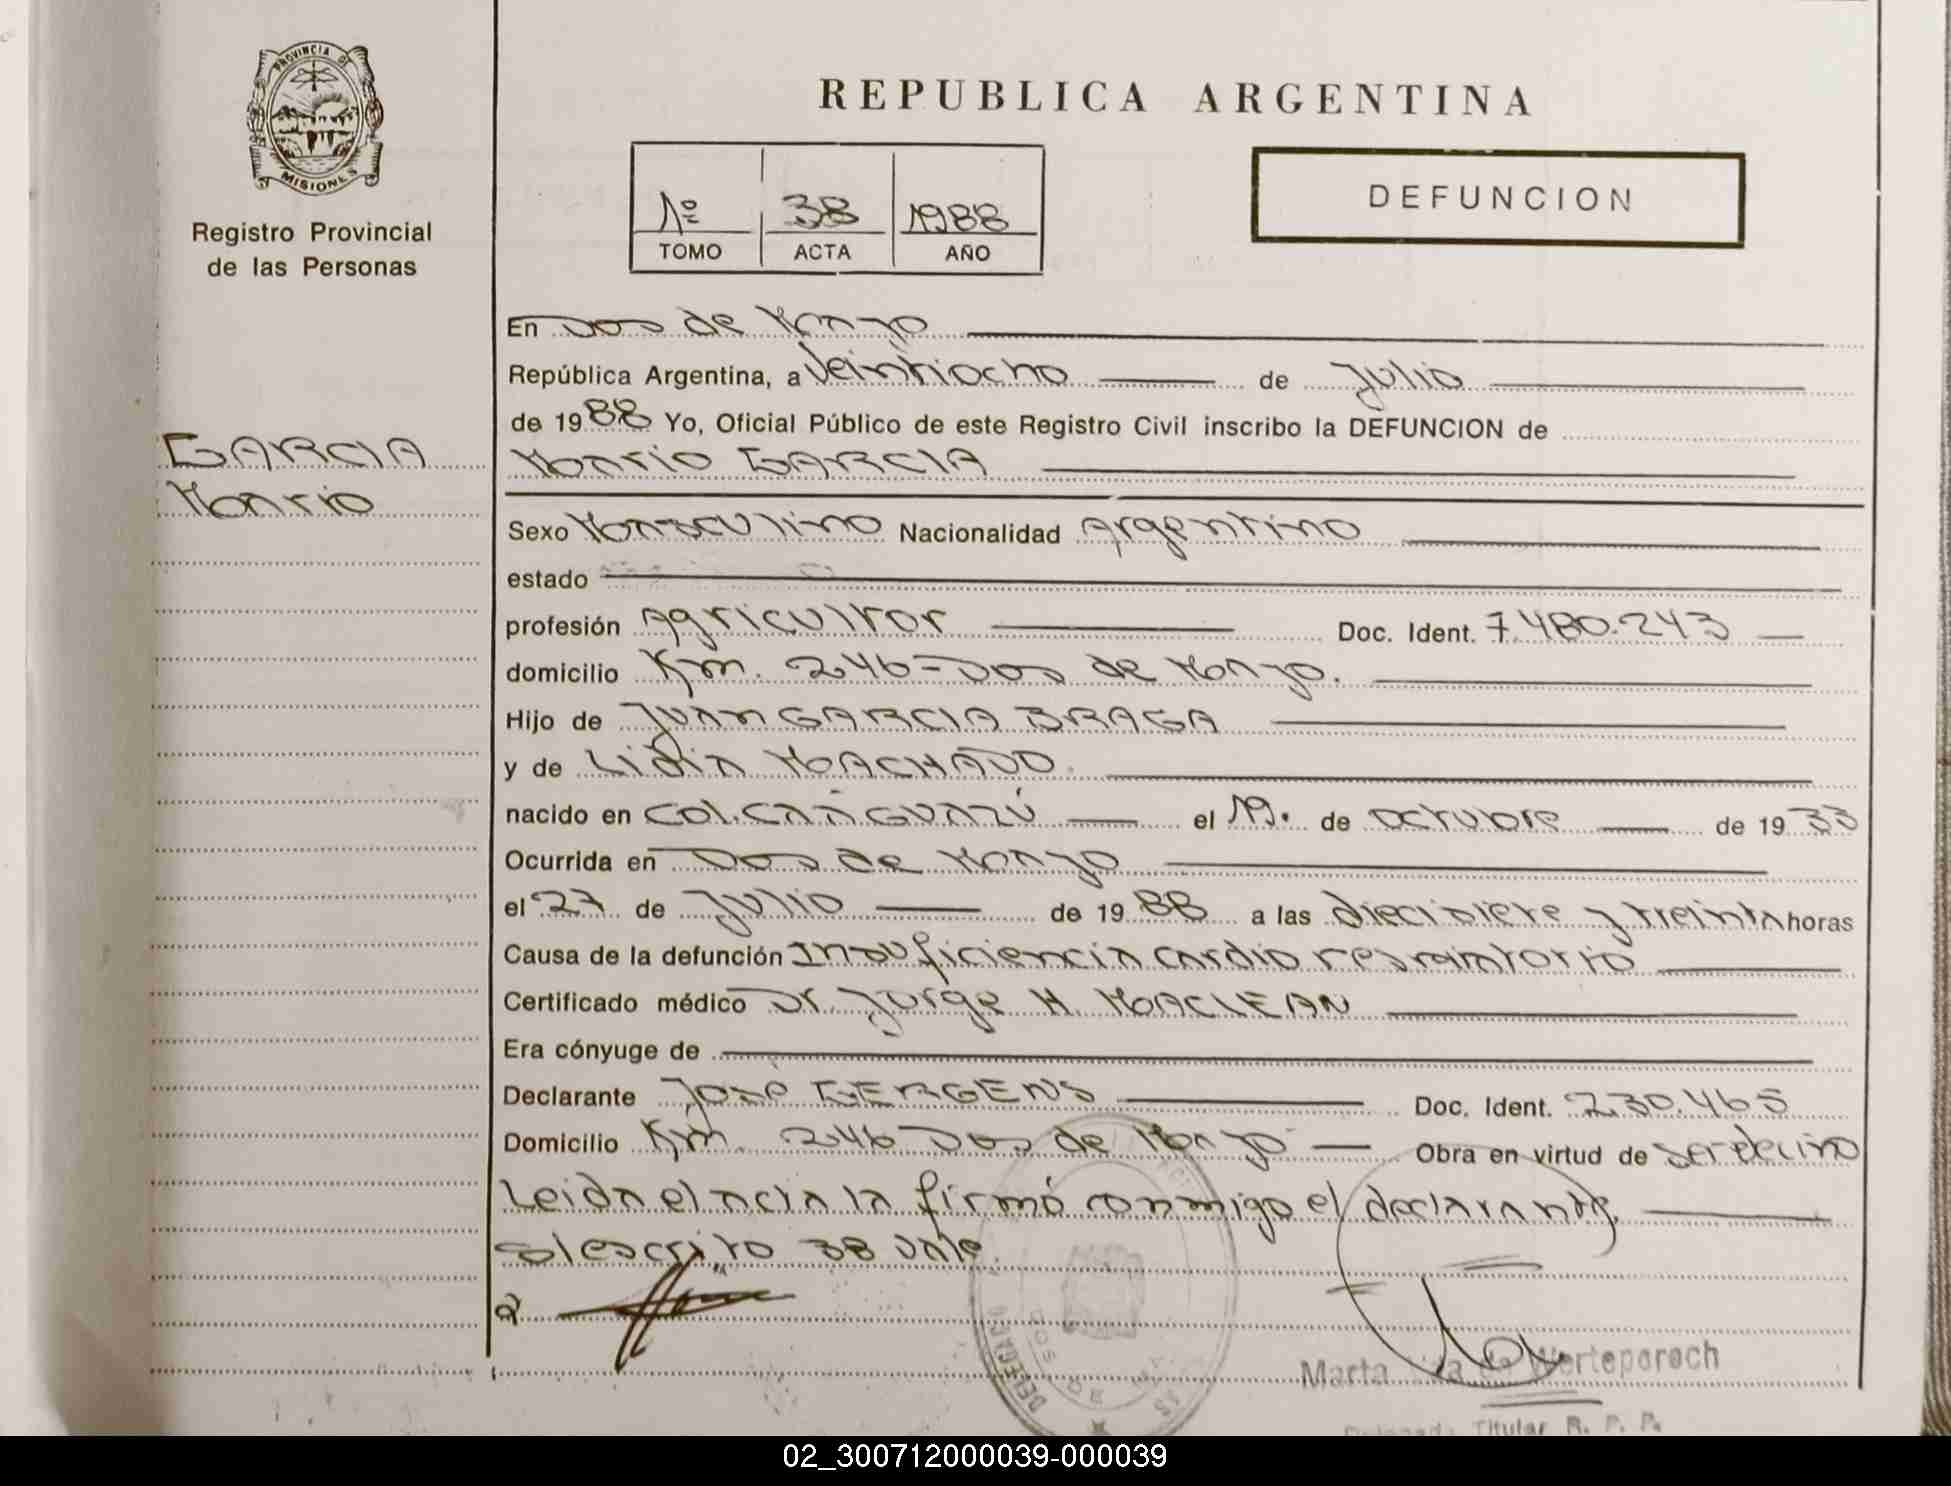 PROVINCIA DE
MISIONES
Registro Provincial
de las Personas
GARCIA
Mario
REPUBLICA ARGENTINA
1º 38 1988
TOMO ACTA AÑO
DEFUNCION
En Dos de Mayo
República Argentina, a Veintiocho de Julio
de 1988 Yo, Oficial Público de este Registro Civil inscribo la DEFUNCION de
Mario GARCIA
Sexo Masculino Nacionalidad Argentino
estado
profesión Agricultor Doc. Ident. 7.480.243
domicilio Km. 246 - Dos de Mayo.
Hijo de JUAN GARCIA BRAGA
y de Lidia MACHADO.
nacido en COL. CAÑGUAZÚ el 19. de octubre de 1933
Ocurrida en Dos de Mayo
el 27 de Julio de 1988 a las diecisiete y treinta horas
Causa de la defunción Insuficiencia cardio respiratorio
Certificado médico Dr. Jorge H. MACLEAN
Era cónyuge de
Declarante José GERGENS Doc. Ident. 230.465
Domicilio Km. 246 Dos de Mayo Obra en virtud de ser vecino
Leida el acta la firmó conmigo el declarante,
S/escrito 38 vale.
DELEGACIO DOS
Marta de Werteporoch
Titular R. P. P.
02_300712000039-000039